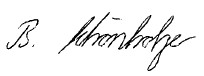 B. Schönholzer